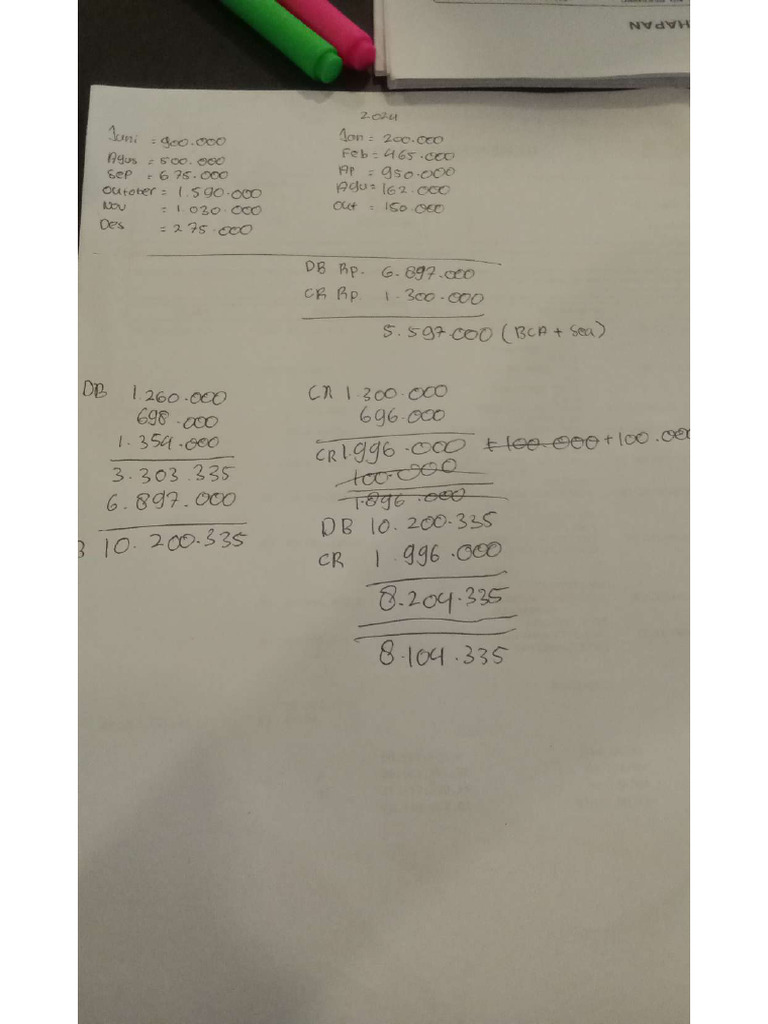 HAPAN
2024
Juni = 900.000
Agus = 500.000
Sep = 675.000
Outober = 1.590.000
Nov = 1.030.000
Des = 275.000
Jan = 200.000
Feb = 465.000
AP = 950.000
Agu = 162.000
Out = 150.000
DB Rp. 6.897.000
CR Rp. 1.300.000
5.597.000 (BCA + Sea)
DB 1.260.000
698.000
1.354.000
3.303.335
6.897.000
10.200.335
CR 1.300.000
696.000
CR 1.996.000 +100.000 +100.000
100.000
1.896.000
DB 10.200.335
CR 1.996.000
8.204.335
8.104.335